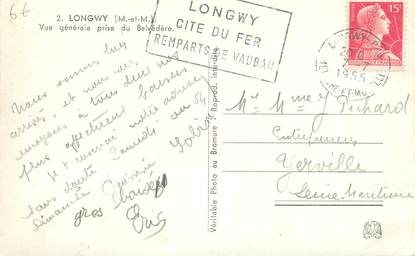 6€
2. LONGWY (M.-et-M.)
Vue générale prise du Belvédère.
LONGWY
CITE DU FER
REMPARTS DE VAUBAN
15F
LONGWY
1955
Nous sommes bien
arrivés, et nous vous
envoyons à tous deux nos
plus affectueux baisers
notre adresse
Sans doute Samedi au 54
dimanche
gros baisers
Véritable Photo au Bromure - Reprod. Interdite
Mr Mme Pichard
Entrepreneur
Yerville
Seine Maritime